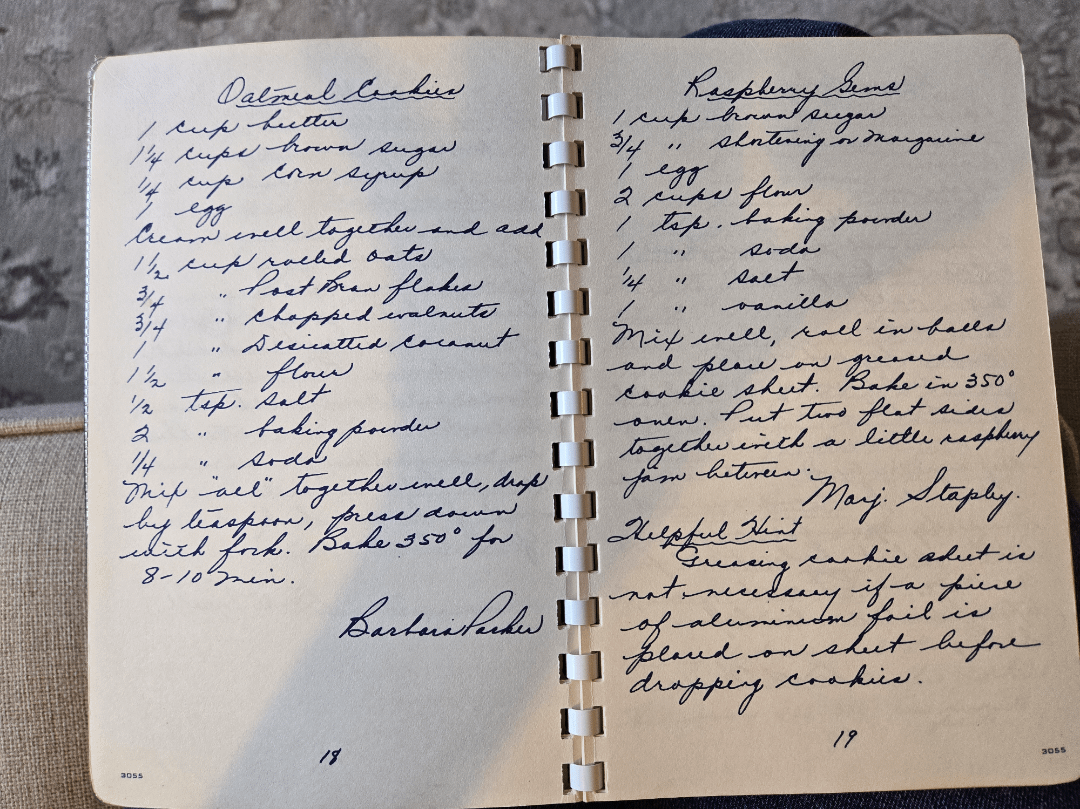 Oatmeal Cookies
1 cup butter
1 1/4 cups brown sugar
1/4 cup corn syrup
1 egg
Cream well together and add
1 1/2 cup rolled oats
3/4 " Post Bran flakes
3/4 " chopped walnuts
1 " Desicatted Cocanut
1 1/2 " flour
1/2 tsp. salt
2 " baking powder
1/4 " soda
Mix "all" together well, drop
by teaspoon, press down
with fork. Bake 350° for
8-10 min.
Barbara Parker
18
3055
Raspberry Gems
1 cup brown sugar
3/4 " shortening or Margarine
1 egg
2 cups flour
1 tsp. baking powder
1 " soda
1/4 " salt
1 " vanilla
Mix well, roll in balls
and place on greased
cookie sheet. Bake in 350°
oven. Put two flat sides
together with a little raspberry
jam between.
Marj. Stapley.
Helpful Hint
Greasing cookie sheet is
not necessary if a piece
of aluminum foil is
placed on sheet before
dropping cookies.
19
3055